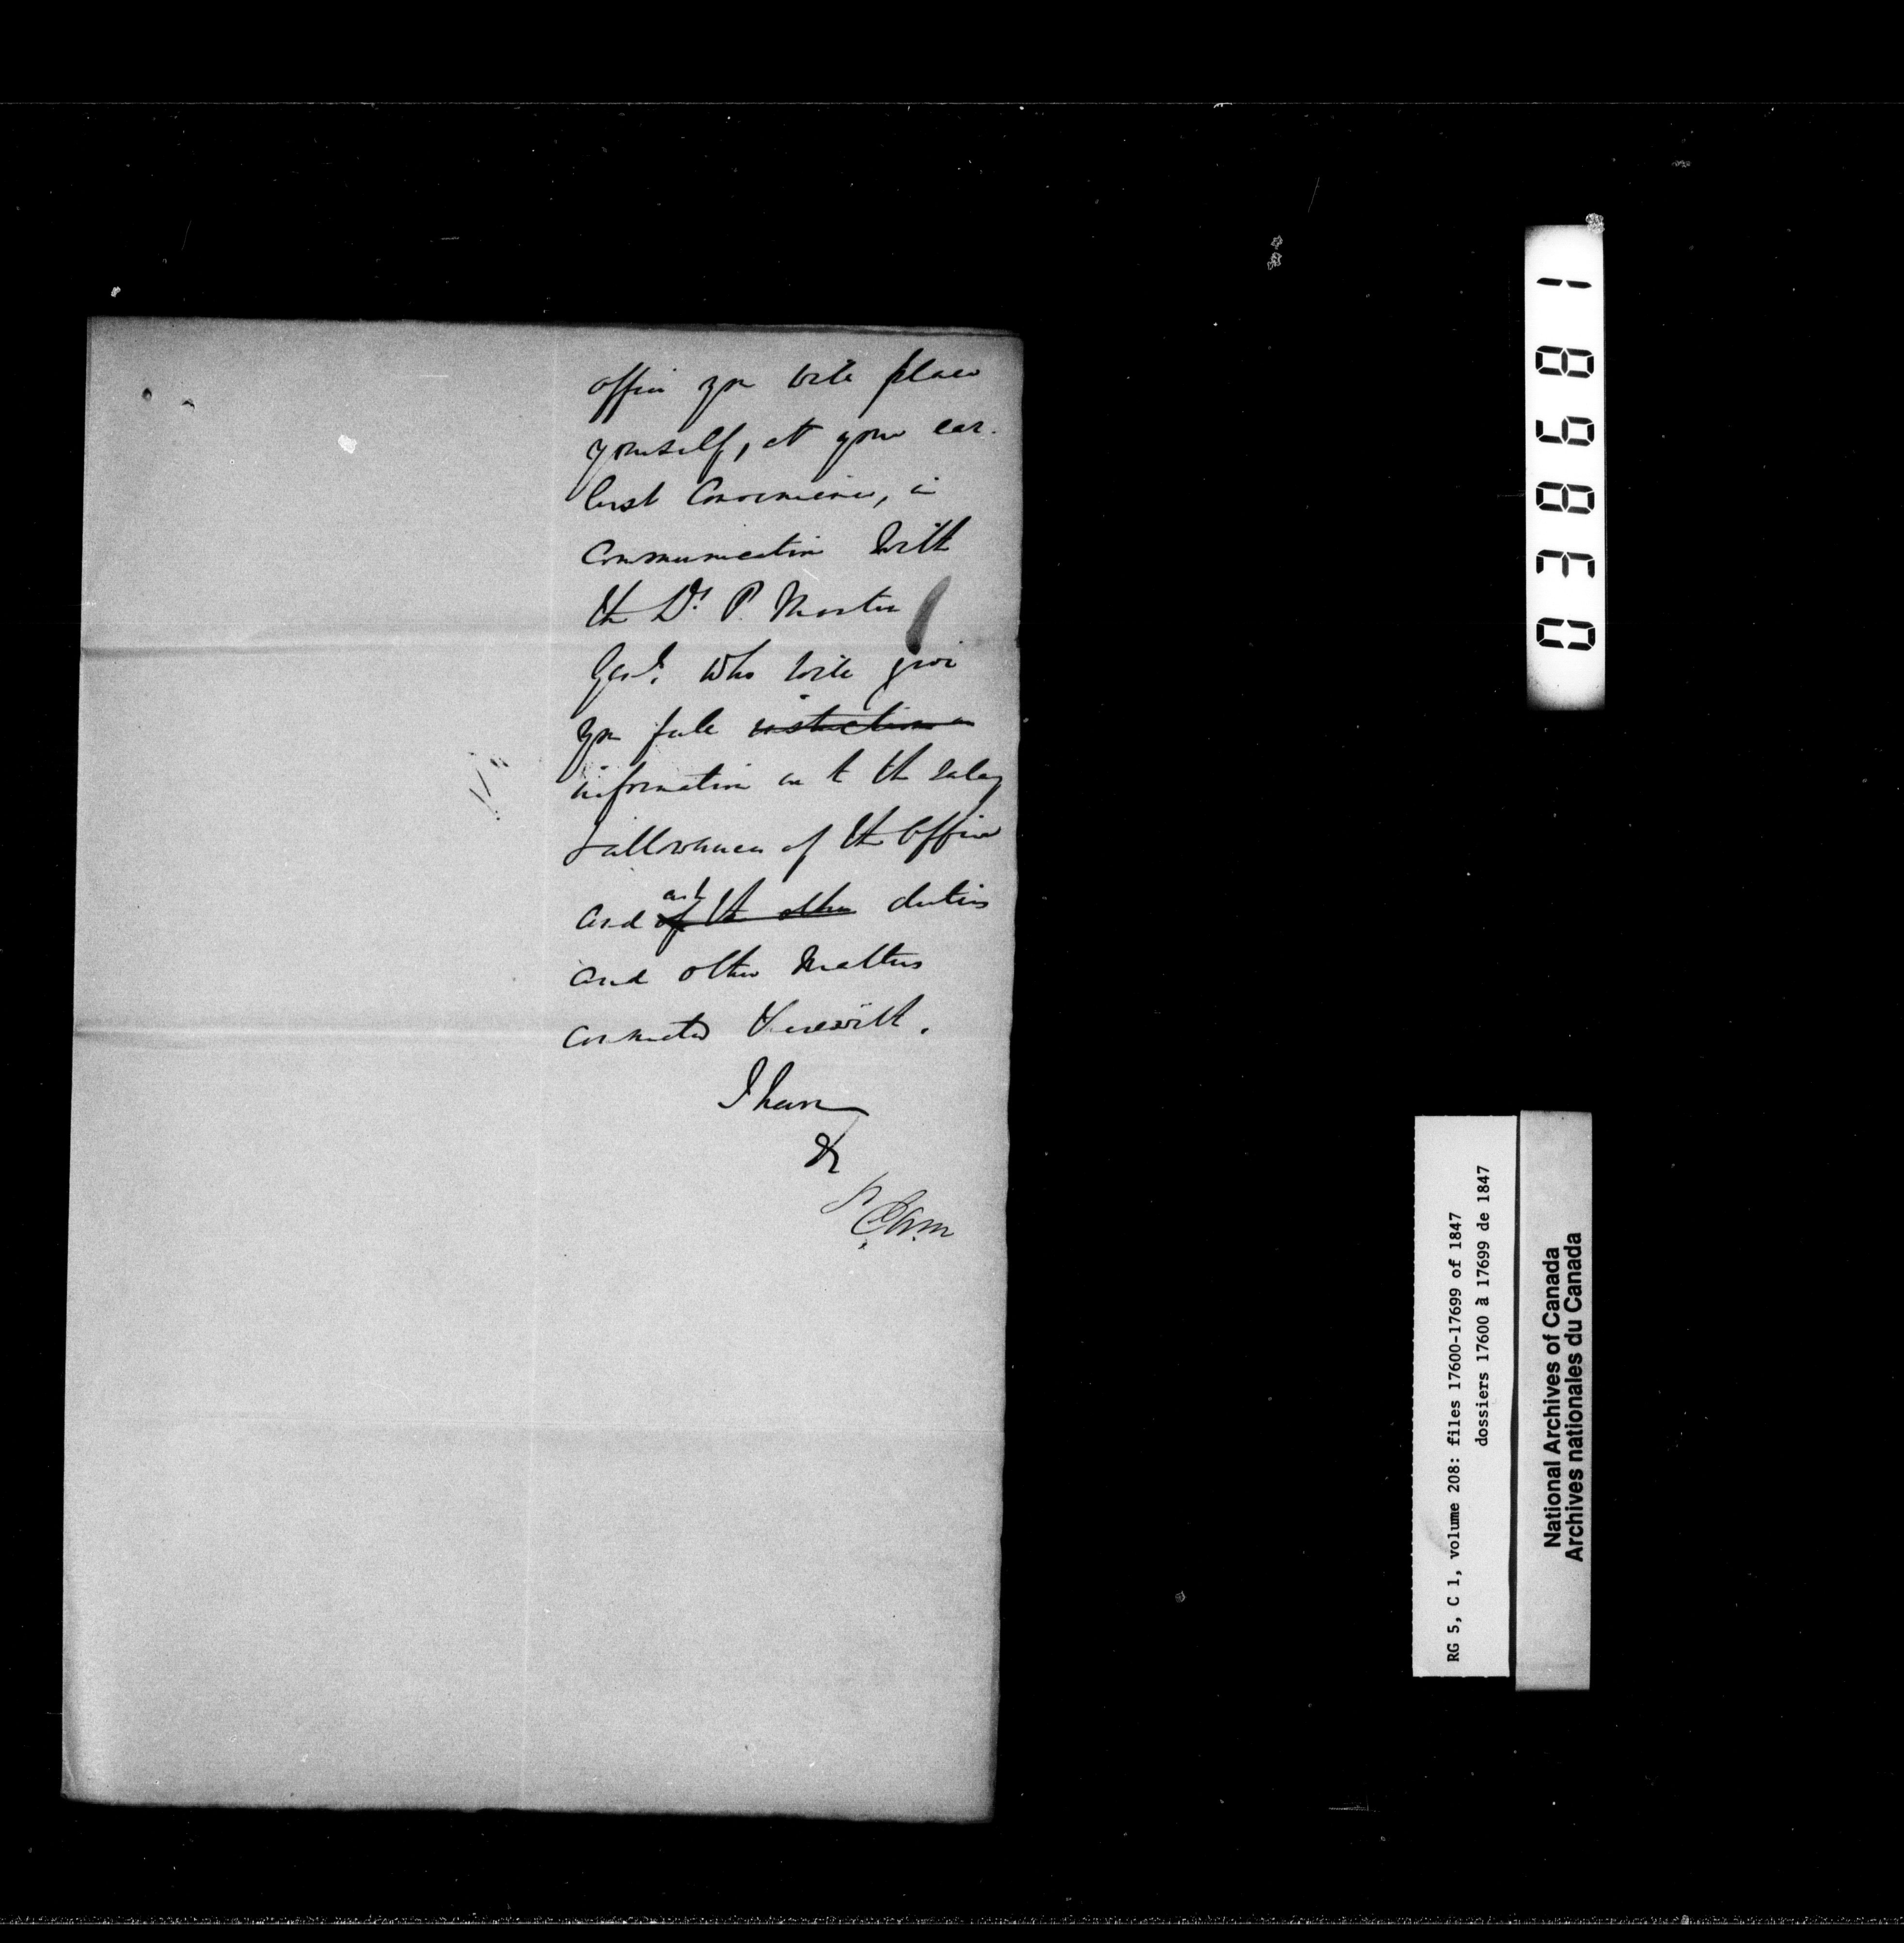 office you will place
yourself, at your ear-
liest Convenience, in
Communication with
the Dy. P. Master
Genl. who will give
you full instructions
information as to the salary
& allowances of the Office
and as to of the other duties
and other Matters
connected therewith.
I have
&c
038681
RG 5, C 1, volume 208: files 17600-17699 of 1847
dossiers 17600 à 17699 de 1847
National Archives of Canada
Archives nationales du Canada